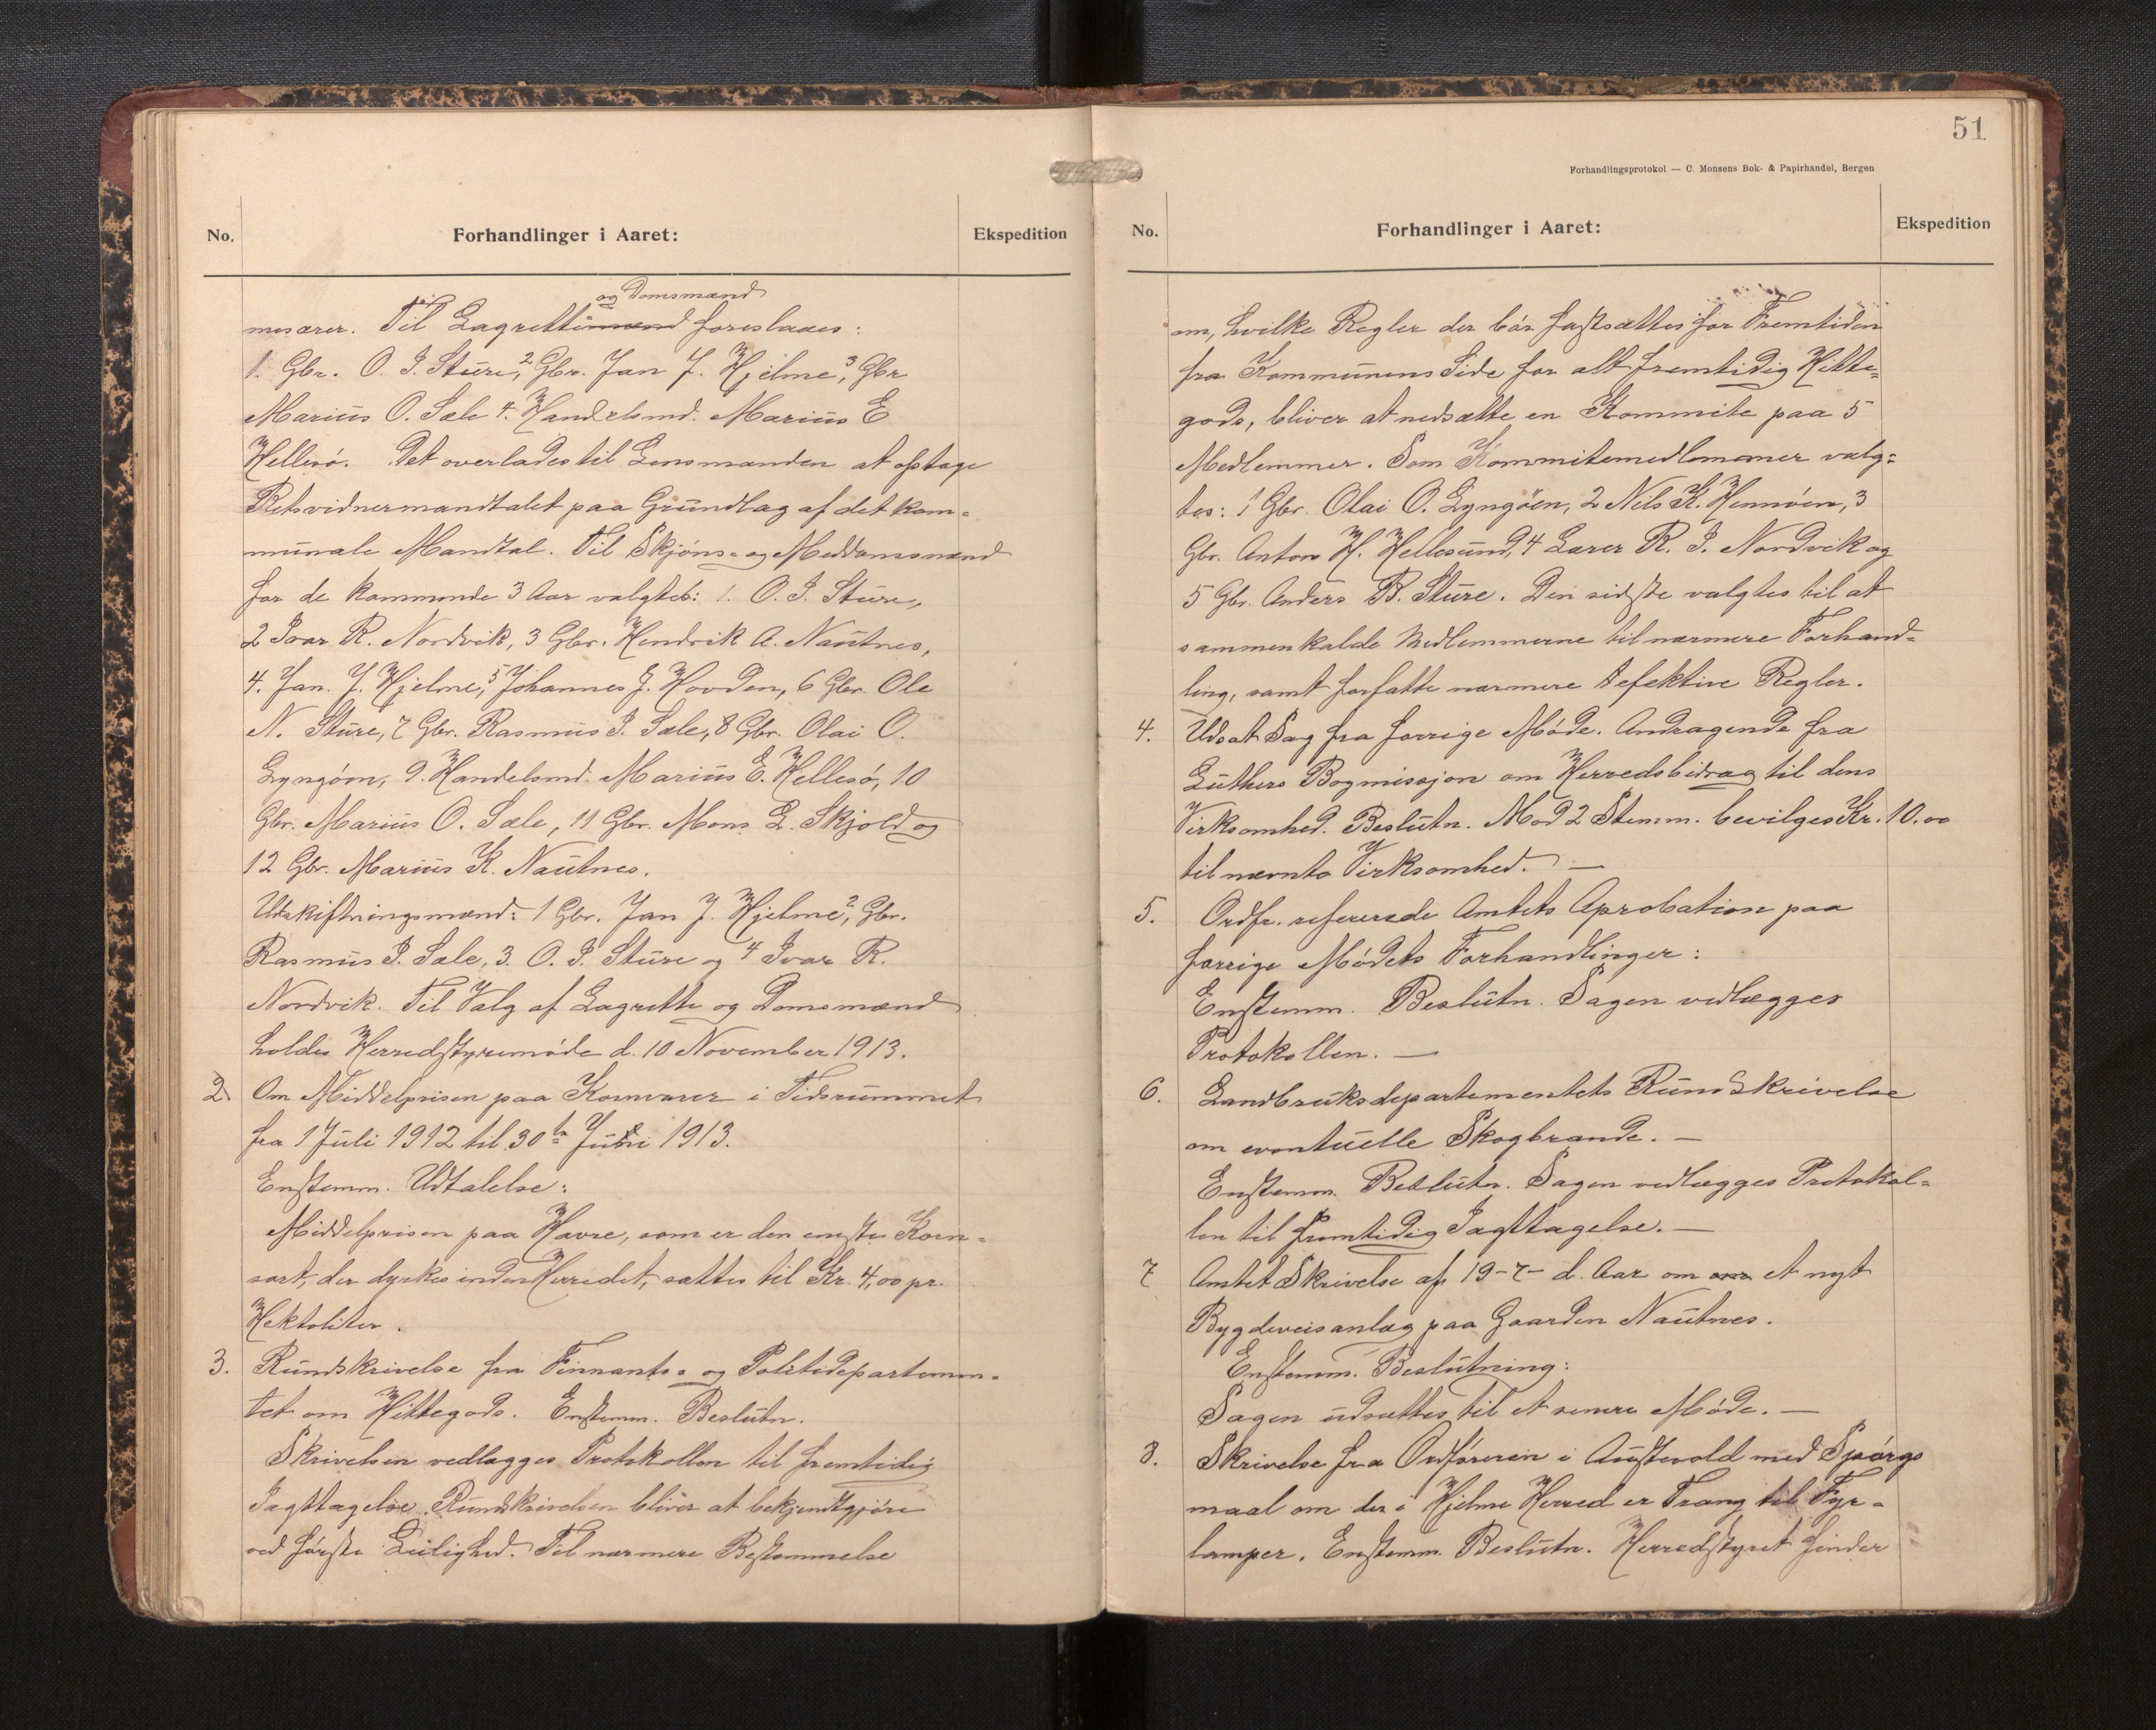 No.
Forhandlinger i Aaret:
Ekspedition
og Domsmænd
mesærer. Til Lagrettemænd foreslaaes:
1. Gbr. O. I. Sture, 2 Gbr. Jan J. Hjelme, 3, Gbr
Marius O. Sæle 4. Handelsmd. Marius E
Hellesø. Det overlades til Lensmanden at optage
Retsvidnermandtalet paa Grundlag af det kom-
munale Mandtal. Til Skjøns- og Meddomsmænd
for de kommende 3 Aar valgtes: 1. O. I. Sture,
2 Ivar R. Nordvik, 3 Gbr. Hendrik A. Nautnes,
4. Jan. J. Hjelme, 5 Johannes J. Hovden, 6 Gbr. Ole
N. Sture, 7 Gbr. Rasmus I. Sæle, 8 Gbr. Olai O.
Lyngøen, 9. Handelsmd. Marius E. Hellesø, 10
Gbr. Marius O. Sæle, 11 Gbr. Mons L. Skjold og
12 Gbr. Marius K. Nautnes.
Udskiftningsmænd: 1 Gbr. Jan J. Hjelme, 2, Gbr.
Rasmus I. Sæle, 3. O. I. Sture og 4 Ivar R.
Nordvik. Til Valg af Lagrette og Domsmænd
holdes Herredstyremøde d. 10 November 1913.
2. Om Middelprisen paa Kornvarer i Tidsrummet
fra 1 Juli 1912 til 30te Juni 1913.
Enstemm. Udtalelse:
Middelprisen paa Havre, som er den eneste Korn-
sort, der dyrkes inden Herredet, sættes til Kr. 4,00 pr.
Hektoliter.
3. Rundskrivelse fra Finnants- og Politidepartemen-
tet om Hittegods. Enstemm. Beslutn.
Skrivelsen vedlægges Protokollen til fremtidig
Iagttagelse. Rundskrivelsen bliver at bekjendtgjøre
ved første Leilighed. Til nærmere Bestemmelse
51
Forhandlingsprotokol — C. Monsens Bok- & Papirhandel, Bergen
No.
Forhandlinger i Aaret:
Ekspedition
om, hvilke Regler der bør fastsættes for Fremtiden
fra Kommunens Side for alt fremtidig Hitte-
gods, bliver at nedsætte en Kommite paa 5
Medlemmer. Som Kommitemedlemmer valg-
tes: 1 Gbr. Olai O. Lyngøen, 2 Nils K. Hennøen, 3
Gbr. Anton H. Hellesund, 4 Lærer R. I. Nordvik og
5 Gbr. Anders B. Sture. Den sidste valgtes til at
sammenkalde Medlemmerne til nærmere Forhand-
ling, samt forfatte nærmere defektive Regler.
4. Udsat Sag fra forrige Møde. Andragende fra
Luthers Bogmissjon om Herredsbidrag til dens
Virksomhed. Beslutn. Mod 2 Stemm. bevilges Kr. 10.00
til nævnte Virksomhed. —
5. Ordfr. refererede Amtets Aprobation paa
forrige Mødets Forhandlinger:
Enstemm. Beslutn. Sagen vedlægges
Protokollen. —
6. Landbruksdepartementets Rundskrivelse
om eventuelle Skogbrande. —
Enstemm. Beslutn. Sagen vedlægges Protokol-
len til fremtidig Iagttagelse. —
7 Amtet Skrivelse af 19-7- d. Aar om et nyt
Bygdeveisanlæg paa Gaarden Nautnes.
Enstemm. Beslutning:
Sagen udsættes til et senere Møde. —
8. Skrivelse fra Ordføreren i Austevold med Spørgs
maal om der i Hjelme Herred er Trang til Fyr-
lamper. Enstemm. Beslutn. Herredstyret finder